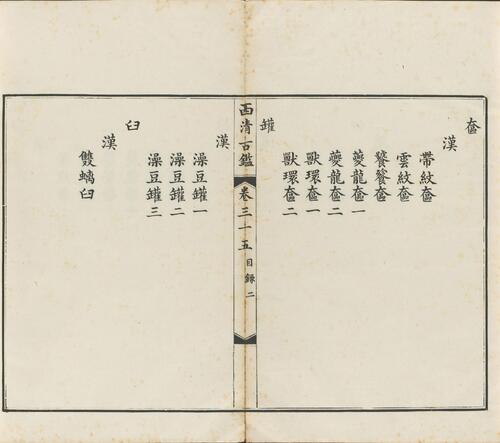 奩
漢
帶紋奩
雲紋奩
饕餮奩
夔龍奩一
夔龍奩二
獸環奩一
獸環奩二
罐
西清古鑑 卷三十五 目錄 二
漢
澡豆罐一
澡豆罐二
澡豆罐三
臼
漢
雙螭臼